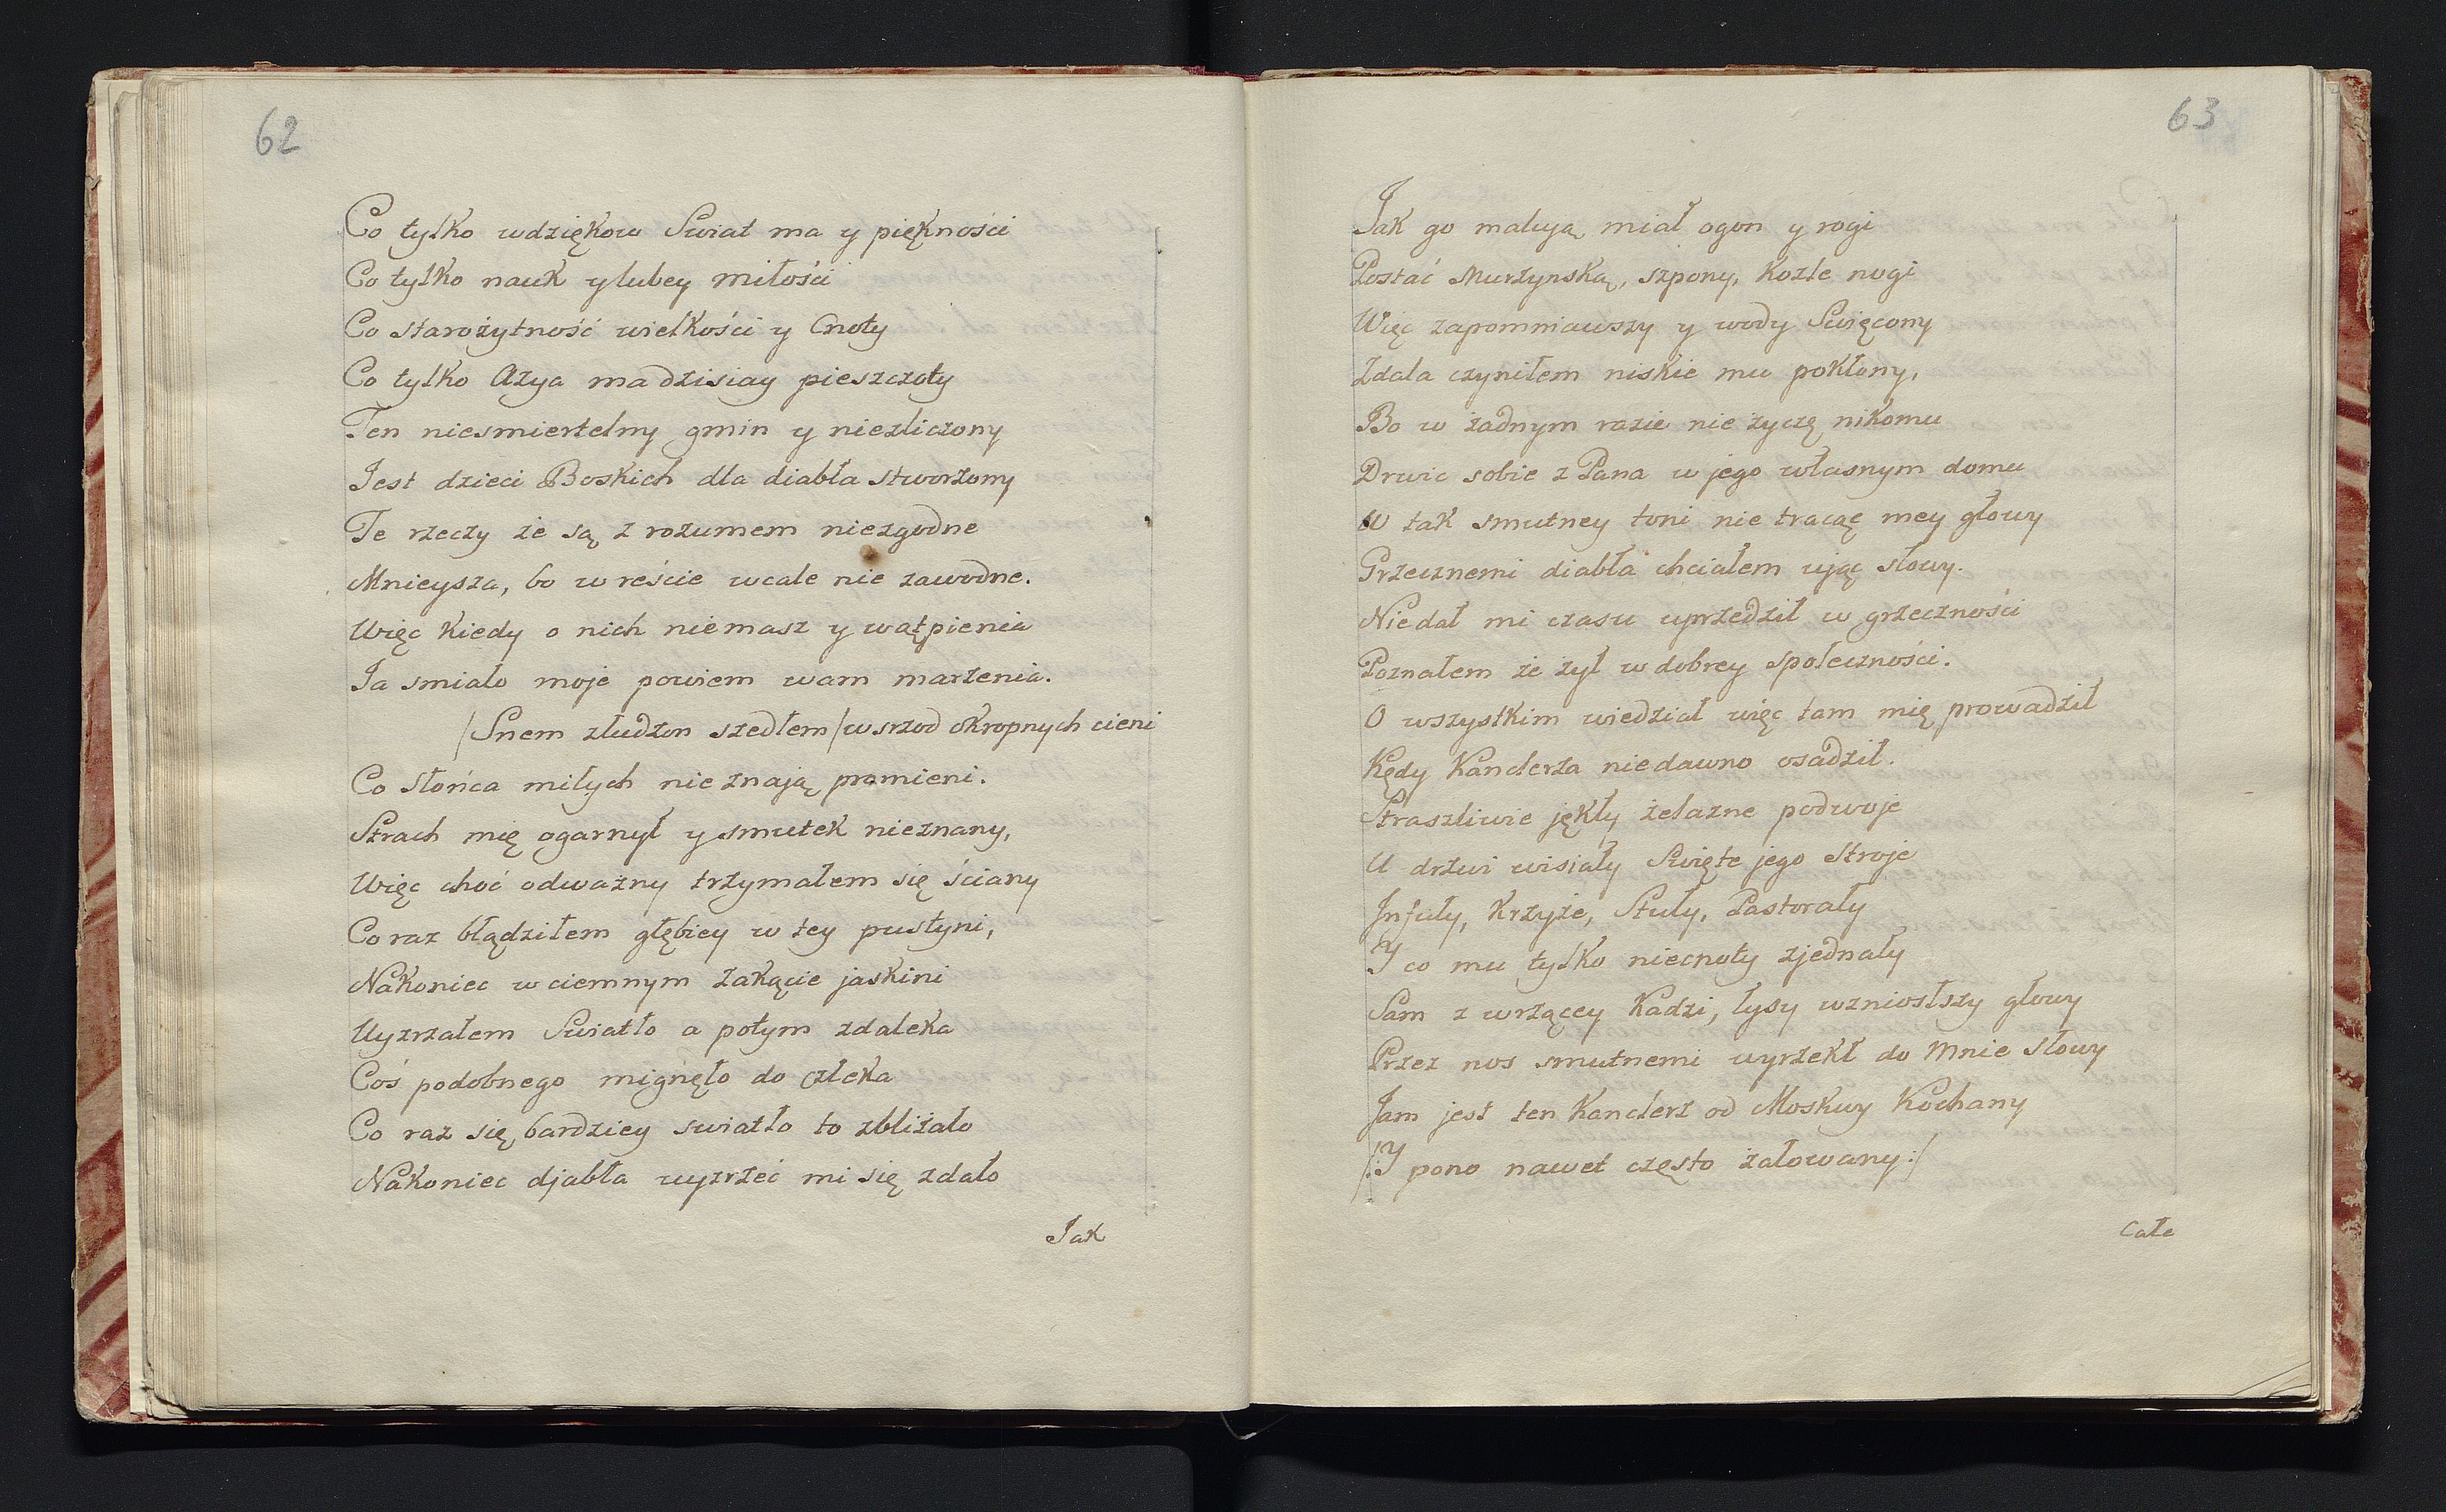 62
Co tylko wdziękow Swiat ma y piękności
Co tylko nauk y lubey miłości
Co starożytność wielkości y Cnoty
Co tylko Azya ma dzisiay pieszczoty
Ten niesmiertelny gmin y niezliczony
Jest dzieci Boskich dla diabła stworzony
Te rzeczy że są z rozumem niezgodne
Mnieysza, bo w reście wcale nie zawodne.
Więc kiedy o nich niemasz y wątpienia
Ja smiało moje powiem wam marzenia.
/Snem złudzon szedłem/ wsrzod okropnych cieni
Co słońca miłych nie znają promieni.
Strach mię ogarnył y smutek nieznany,
Więc choć odważny trzymałem się ściany
Co raz błądziłem głębiey w tey pustyni,
Nakoniec w ciemnym zakącie jaskini
Uyzrzałem Swiatło a potym zdaleka
Coś podobnego mignęło do człeka
Co raz się bardziey swiatło to zbliżało
Nakoniec djabła uyzrzeć mi się zdało
Jak
63
Jak go malują miał ogon y rogi
Postać Murzynską, szpony, kozle nogi
Więc zapomniawszy y wody Swięcony
Zdala czyniłem niskie mu pokłony,
Bo w żadnym razie nie życzę nikomu
Drwic sobie z Pana w jego własnym domu
W tak smutney toni nie tracąc mey głowy
Grzecznemi diabła chciałem ująć słowy.
Niedał mi czasu uprzedził w grzeczności
Poznałem że żył w dobrey społeczności.
O wszystkim wiedział więc tam mię prowadził
Kędy Kanclerza niedawno osadził.
Straszliwie jękły żelazne podwoje
U drzwi wisiały Swięte jego stroje
Infuły, Krzyże, Stuły, Pastorały
Y co mu tylko niecnoty zjednały
Sam z wrzącey Kadzi, łysy wzniosłszy głowy
Przez nos smutnemi wyrzekł do mnie słowy
Jam jest ten Kanclerz od Moskwy Kochany
/:Y pono nawet często żałowany:/
Całe